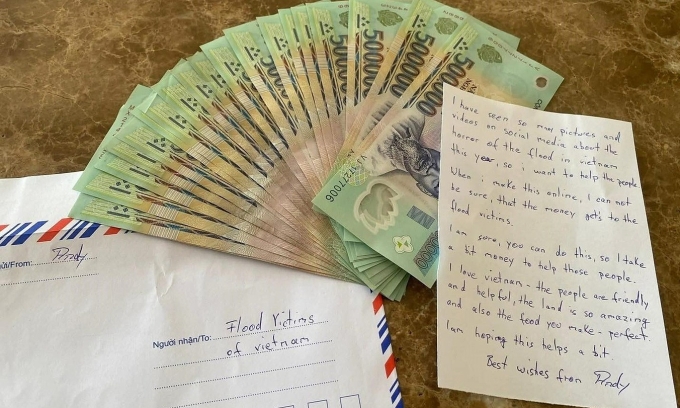 500000
500000
500000
VJ 37277006
I have seen so many pictures and
videos on social media about the
horror of the flood in vietnam
this year, so i want to help the people
When i make this online, I can not
be sure, that the money get's to the
flood victims.
I am sure, you can do this, so I take
a bit money to help those people.
I love vietnam - the people are friendly
and helpful, the land is so amazing
and also the food you make - perfect.
I am hoping this helps a bit.
Best wishes from Andy
ửi/From: Andy
Người nhận/To: Flood Victims
of vietnam